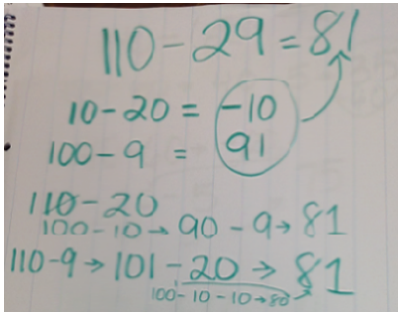 110-29=81
10-20 = -10
100-9 = 91
110-20
100-10→90-9→81
110-9→101-20→81
100-10-10→80